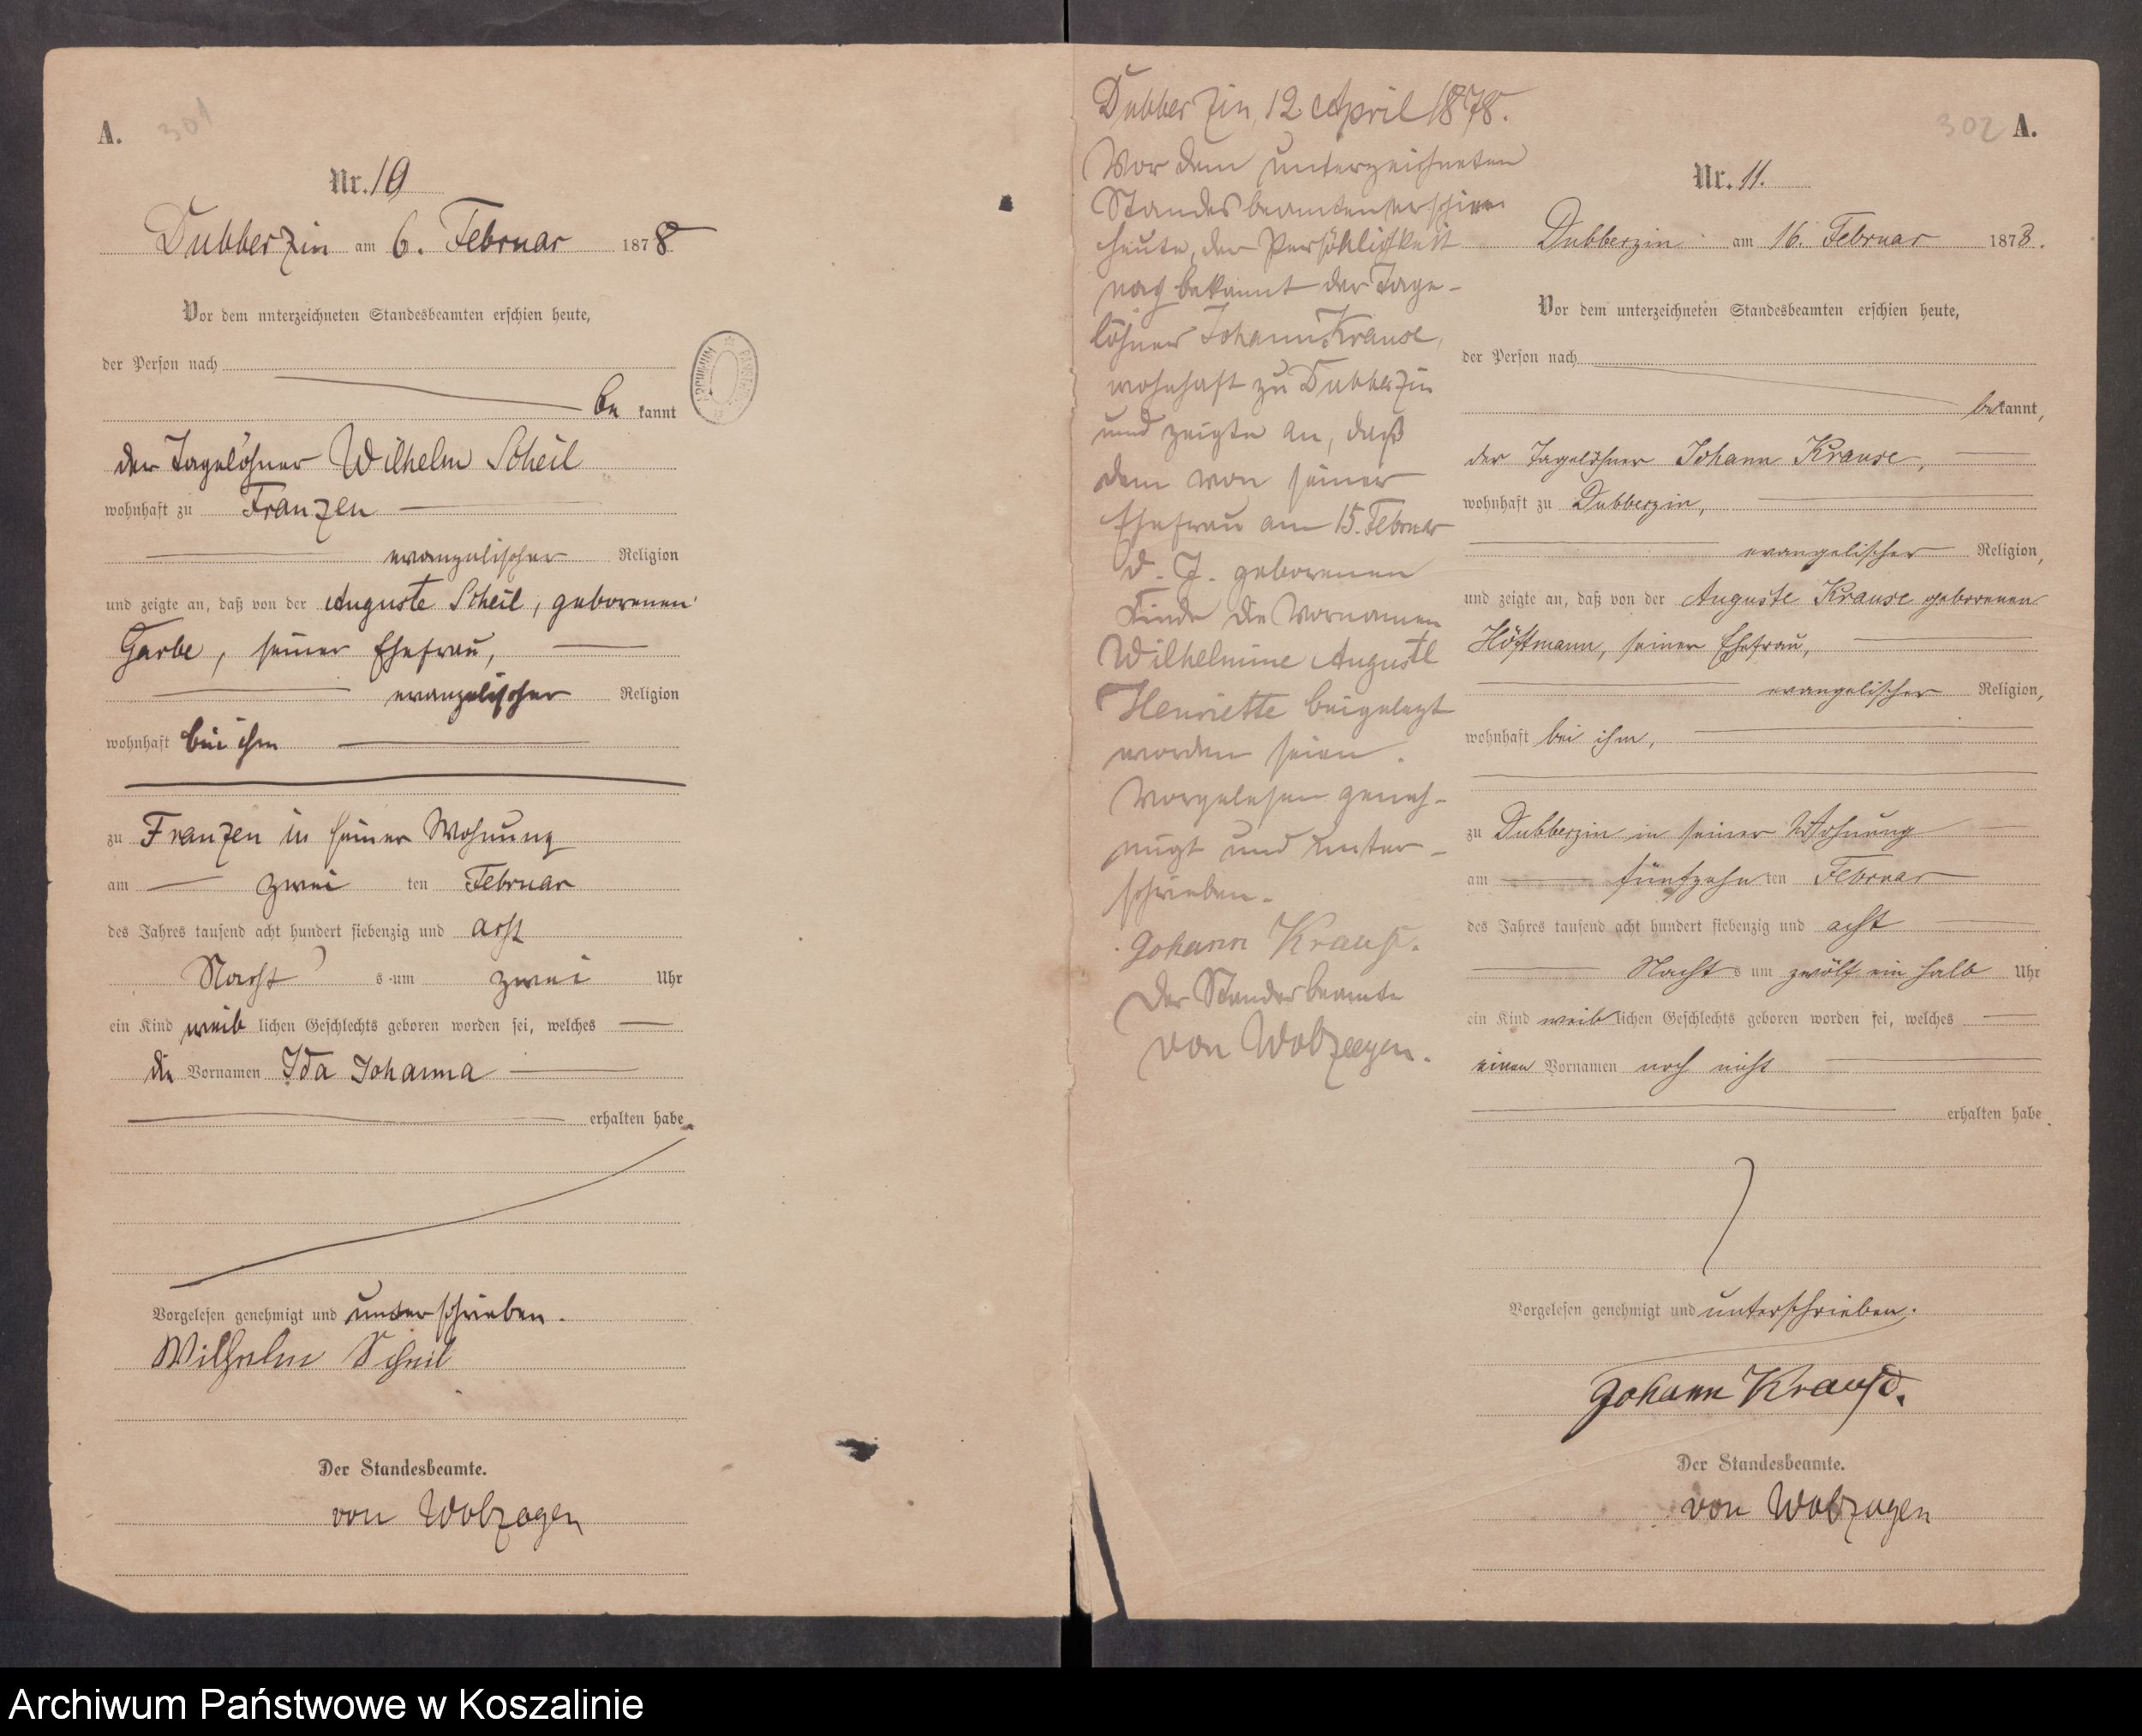 A.
301
Nr. 10
Dubberzin am 6. Februar 1878.
Vor dem unterzeichneten Standesbeamten erschien heute,
der Person nach
be kannt
der Tagelöhner Wilhelm Scheil
wohnhaft zu Franzen
evangelischer Religion
und zeigte an, daß von der Auguste Scheil, geborenen
Garbe, seiner Ehefrau,
evangelischer Religion
wohnhaft bei ihm
zu Franzen in seiner Wohnung
am zwei ten Februar
des Jahres tausend acht hundert siebenzig und acht
Nacht s um zwei Uhr
ein Kind weib lichen Geschlechts geboren worden sei, welches
die Vornamen Ida Johanna
erhalten habe.
Vorgelesen genehmigt und unterschrieben.
Wilhelm Scheil
Der Standesbeamte.
von Wolzogen
Dubberzin, 12. April 1878.
Vor dem unterzeichneten
Standesbeamten erschien
heute, der Persöhlichkeit
nach bekannt der Tage-
löhner Johann Krause,
wohnhaft zu Dubberzin
und zeigte an, daß
dem von seiner
Ehefrau am 15. Februar
d. J. geborenen
Kinde die Vornamen
Wilhelmine Auguste
Henriette beigelegt
worden seien.
Vorgelesen geneh-
migt und unter-
schrieben.
Johann Krause.
Der Standesbeamte
von Wolzogen.
302 A.
Nr. 11.
Dubberzin am 16. Februar 1878.
Vor dem unterzeichneten Standesbeamten erschien heute,
der Person nach
bekannt,
der Tagelöhner Johann Krause,
wohnhaft zu Dubberzin,
evangelischer Religion,
und zeigte an, daß von der Auguste Krause geborenen
Höftmann, seiner Ehefrau,
evangelischer Religion,
wohnhaft bei ihm,
zu Dubberzin in seiner Wohnung
am fünfzehn ten Februar
des Jahres tausend acht hundert siebenzig und acht
Nacht s um zwölf ein halb Uhr
ein Kind weib lichen Geschlechts geboren worden sei, welches
einen Vornamen noch nicht
erhalten habe.
Vorgelesen genehmigt und unterschrieben.
Johann Krause.
Der Standesbeamte.
von Wolzogen
Archiwum Państwowe w Koszalinie